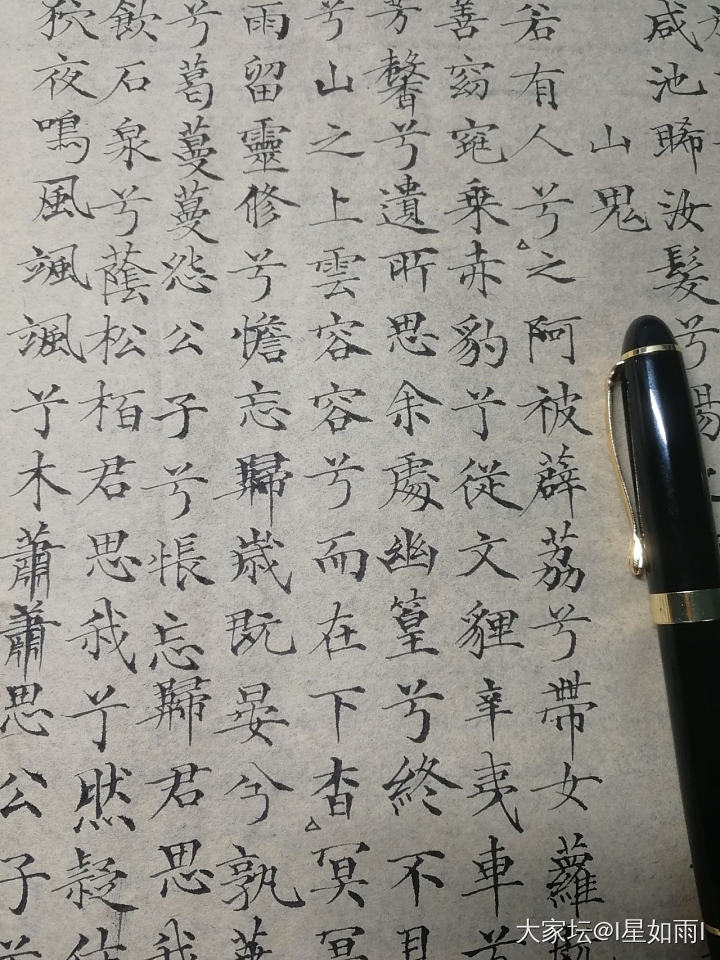 咸池晞汝髮兮陽
山鬼
若有人兮之阿被薜荔兮帶女蘿
善窈窕乘赤豹兮從文貍辛夷車兮
芳馨兮遺所思余處幽篁兮終不見
兮山之上雲容容兮而在下杳冥冥
雨留靈修兮憺忘歸歲既晏兮孰華
兮葛蔓蔓怨公子兮悵忘歸君思我
飲石泉兮蔭松栢君思我兮然疑作
狖夜鳴風颯颯兮木蕭蕭思公子兮
大家坛@I星如雨I